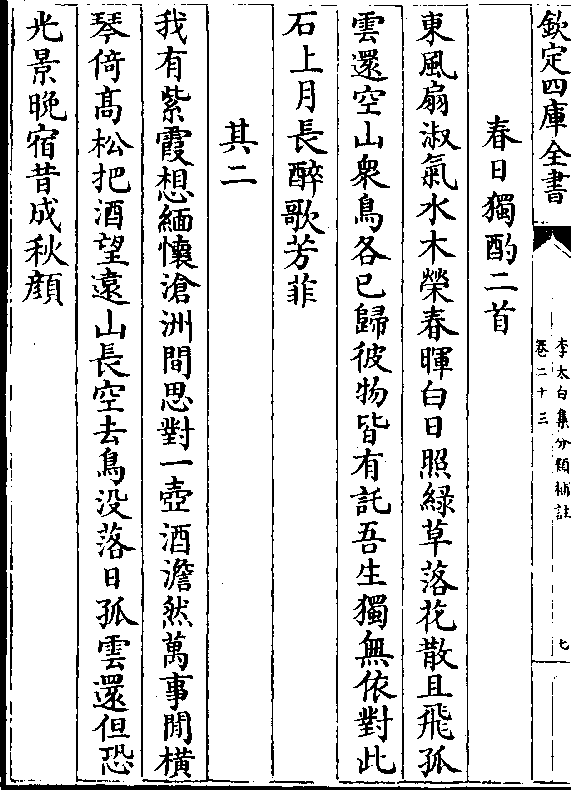 欽定四庫全書
李太白集分類補註
卷二十三
七
春日獨酌二首
東風扇淑氣水木榮春暉白日照緑草落花散且飛孤
雲還空山衆鳥各已歸彼物皆有託吾生獨無依對此
石上月長醉歌芳菲
其二
我有紫霞想緬懷滄洲間思對一壺酒澹然萬事閒橫
琴倚髙松把酒望遠山長空去鳥没落日孤雲還但恐
光景晚宿昔成秋顔